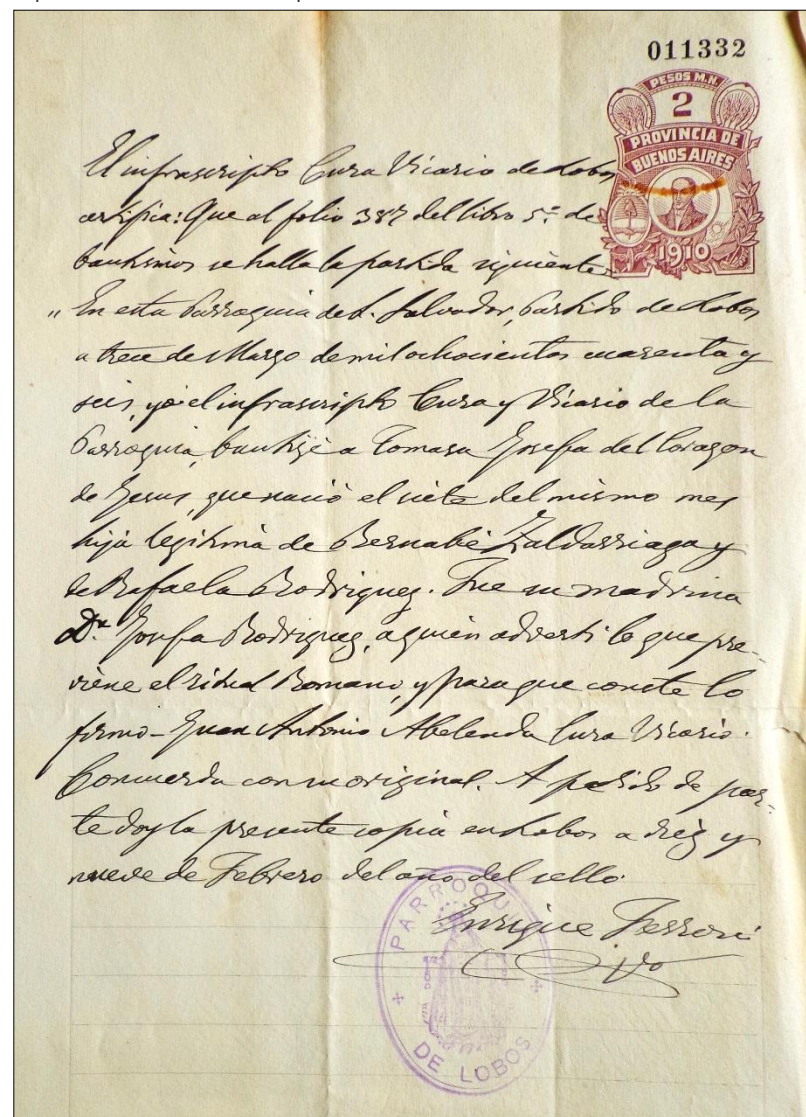 011332
PESOS M.N.
2
PROVINCIA DE
BUENOS AIRES
1910
El infrascripto Cura Vicario de Lobos
certifica: Que al folio 387 del libro 5º de
bautismos se halla la partida siguiente
"En esta Parroquia del S. Salvador, Partido de Lobos
a trece de Marzo de mil ochocientos cuarenta y
seis, yo el infrascripto Cura y Vicario de la
Parroquia, bautizé a Tomasa Josefa del Corazon
de Jesus, que nació el siete del mismo mes
hija legitima de Bernabé Zaldarriaga y
de Rafaela Rodriguez. Fue su madrina
Dª Josefa Rodriguez, a quien adverti lo que pre-
viene el ritual Romano, y para que conste lo
firmo - Juan Antonio Abelenda Cura Vicario.
Concuerda con su original. A pedido de par-
te doy la presente copia en Lobos a diez y
nueve de Febrero del año del sello.
Enrique Ferroni
PARROQUIA
DE LOBOS